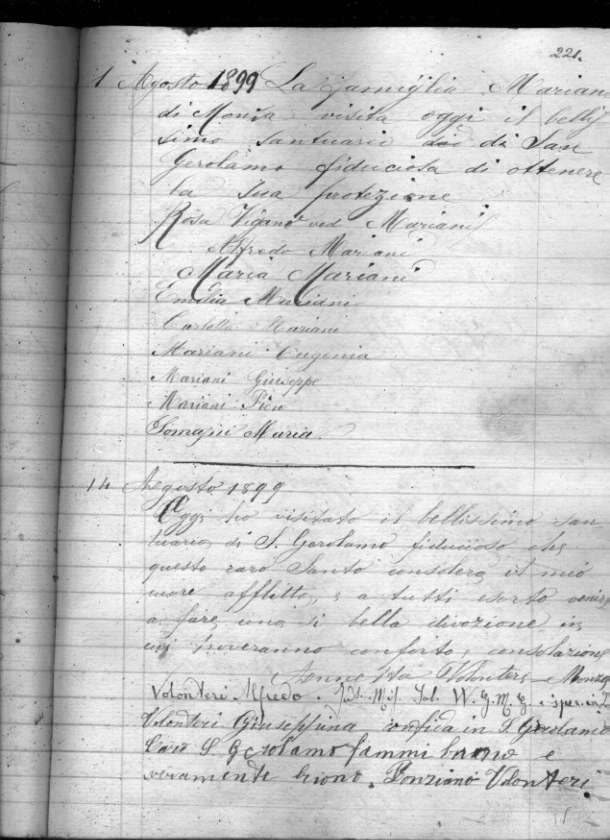 221.
1 Agosto 1899 La famiglia Mariani
di Monza visita oggi il bellis
simo santuario di San
Gerolamo fiduciosa di ottenere
la sua protezione
Rosa Viganò ved Mariani
Alfredo Mariani
Maria Mariani
Emilia Mariani
Mariani
Mariani Eugenia
Mariani Giuseppe
Mariani
Maria
14 Agosto 1899
Oggi ho visitato il bellissimo san
tuario di S. Gerolamo fiducioso che
questo caro Santo consolerà il mio
cuore afflitto, e a tutti esorto
a fare una sì bella divozione
troveranno conforto, consolazione
Monza
Volonteri Alfredo. W. G. M. G. e
Volonteri Giuseppina confida in S. Gerolamo
Caro S. Gerolamo fammi buono e
veramente buono. Ponziano Volonteri.